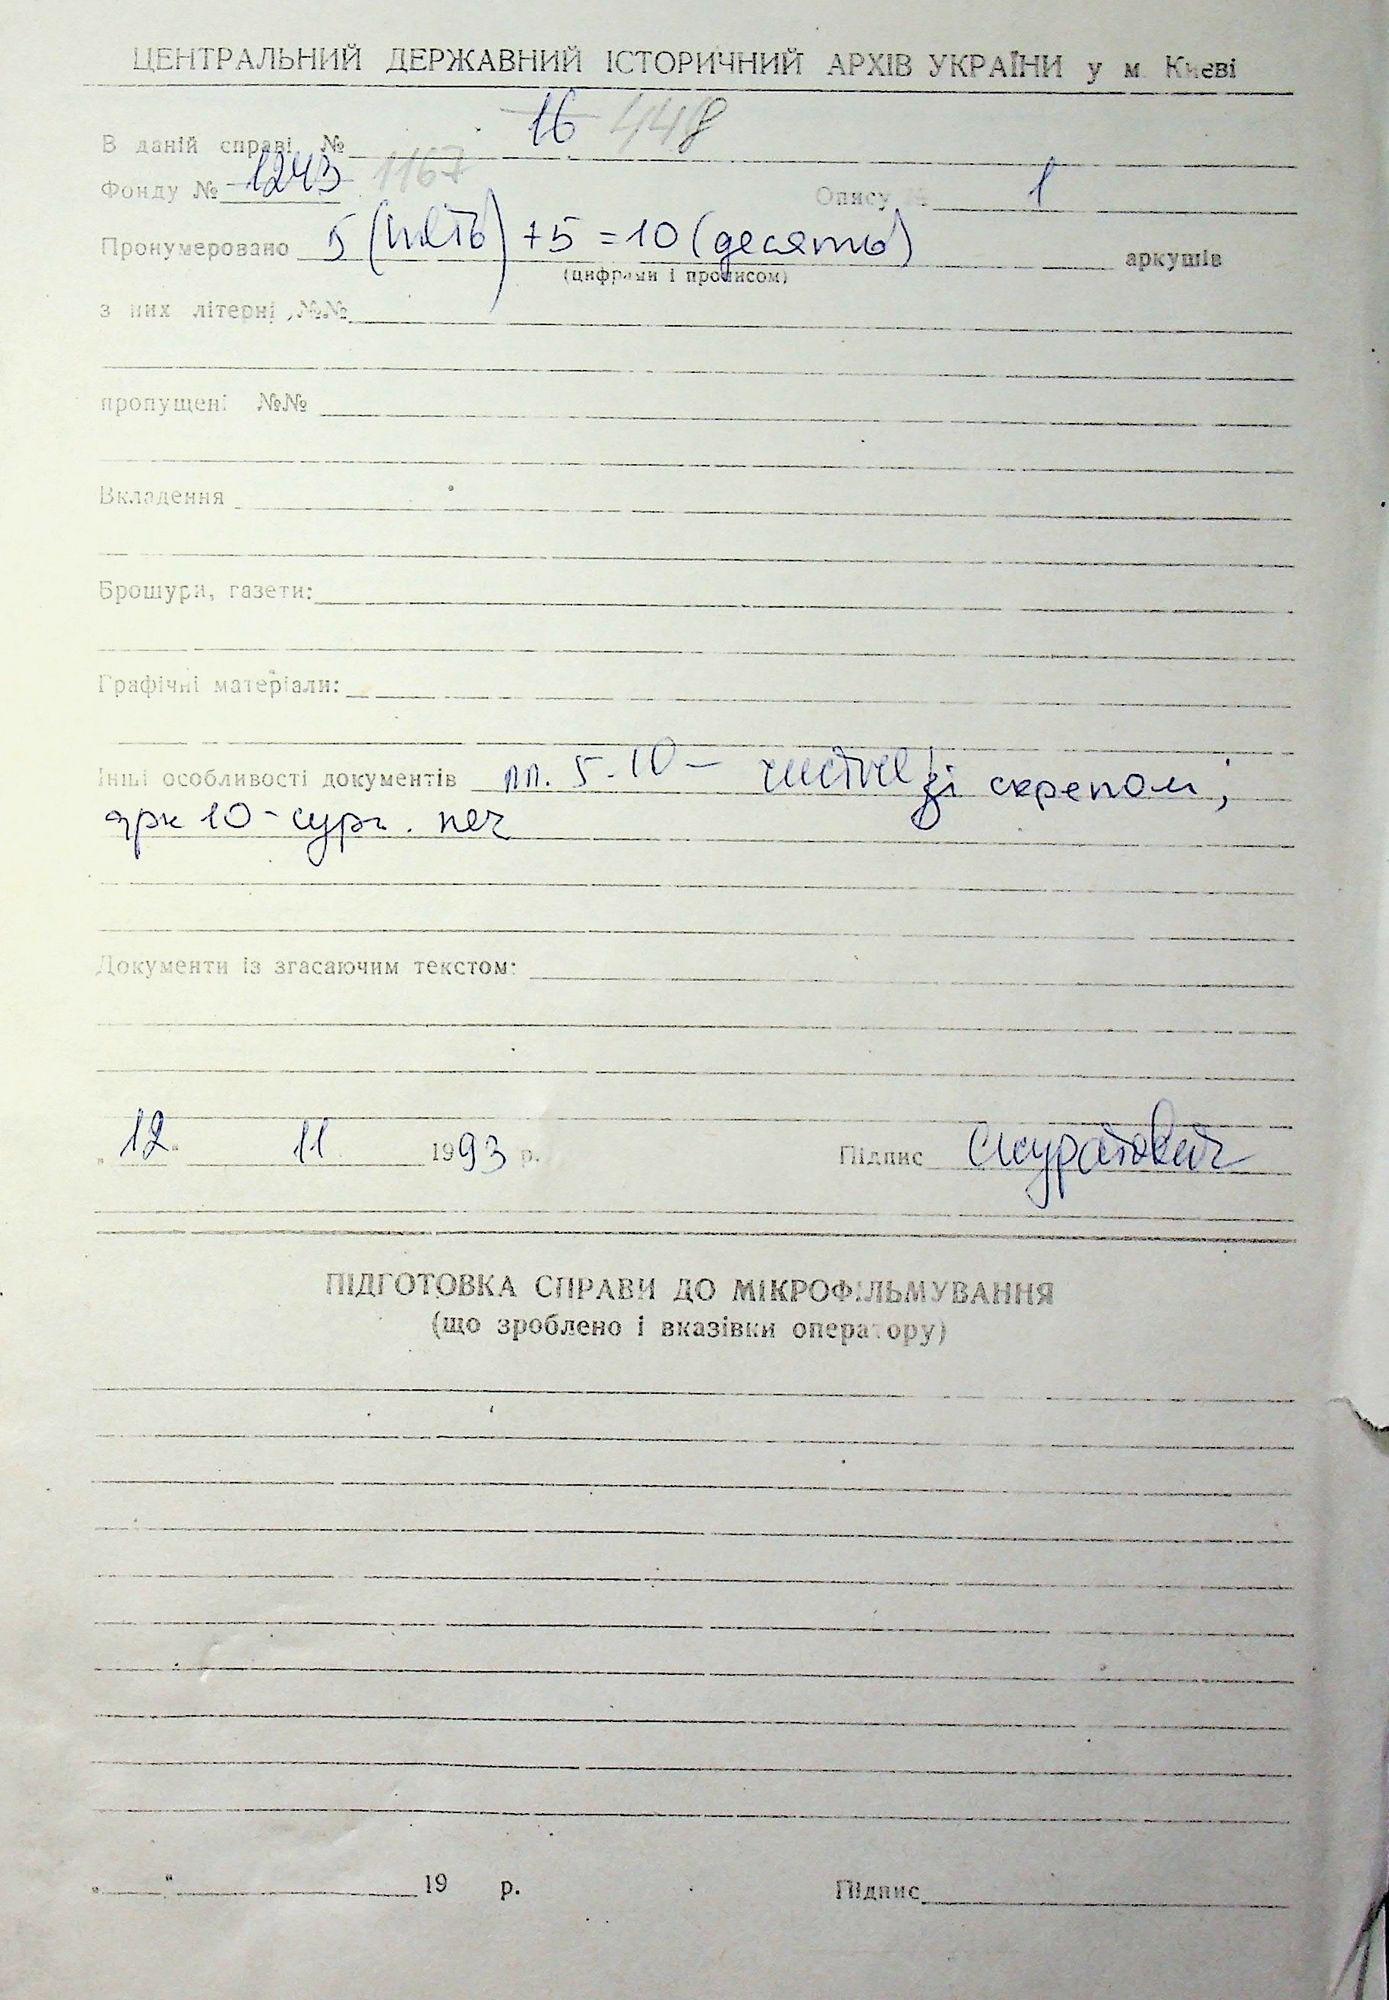 ЦЕНТРАЛЬНИЙ ДЕРЖАВНИЙ ІСТОРИЧНИЙ АРХІВ УКРАЇНИ у м. Києві
В даній справі № 16 448
Фонду № 1243 1167 Опису № 1
Пронумеровано 5 (п'ять) + 5 = 10 (десять) аркушів
(цифрами і прописом)
з них літерні №№
пропущені №№
Вкладення
Брошури, газети:
Графічні матеріали:
Інші особливості документів 5-10 – чисті зі скрепом;
арк 10 - сург. печ
Документи із згасаючим текстом:
„12“ 11 1993 р. Підпис Скуратович
ПІДГОТОВКА СПРАВИ ДО МІКРОФІЛЬМУВАННЯ
(що зроблено і вказівки оператору)
„ “ 19 р. Підпис